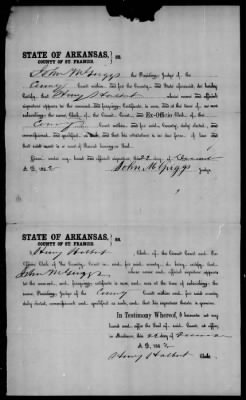 STATE OF ARKANSAS, } SS.
COUNTY OF ST. FRANCIS.
John M Griggs the Presiding Judge of the
County Court within and for the County and State aforesaid, do hereby
Certify, That Henry Halbert whose name and official
signature appears to the annexed and foregoing Certificate, is now, and at the time of so
subscribing the same, Clerk of the Circuit Court and Ex-Officio Clerk of the
County Court within and for said County, duly elected,
commissioned, and qualified as such, and that his attestation is in due form of law
and that said court is a court of Record having a Seal.
Given under my hand and official signature this 22 day of
A. D. 1862 John M Griggs Judge.
STATE OF ARKANSAS, } SS.
COUNTY OF ST. FRANCIS.
Henry Halbert Clerk of the Circuit Court and Ex-
Officio Clerk of the County Court in and for said county, do hereby certify that
John M Griggs whose name and official signature appears
to the annexed and foregoing certificate is now, and was at the time of subscribing the
same, Presiding Judge of the County Court within and for said county
duly elected, commissioned and qualified as such, and that his signature thereto is genuine.
In Testimony Whereof, I hereunto set my
hand and affix the Seal of said Court, at office,
in Madison, this 22 day of
A. D. 1862
Henry Halbert Clerk.